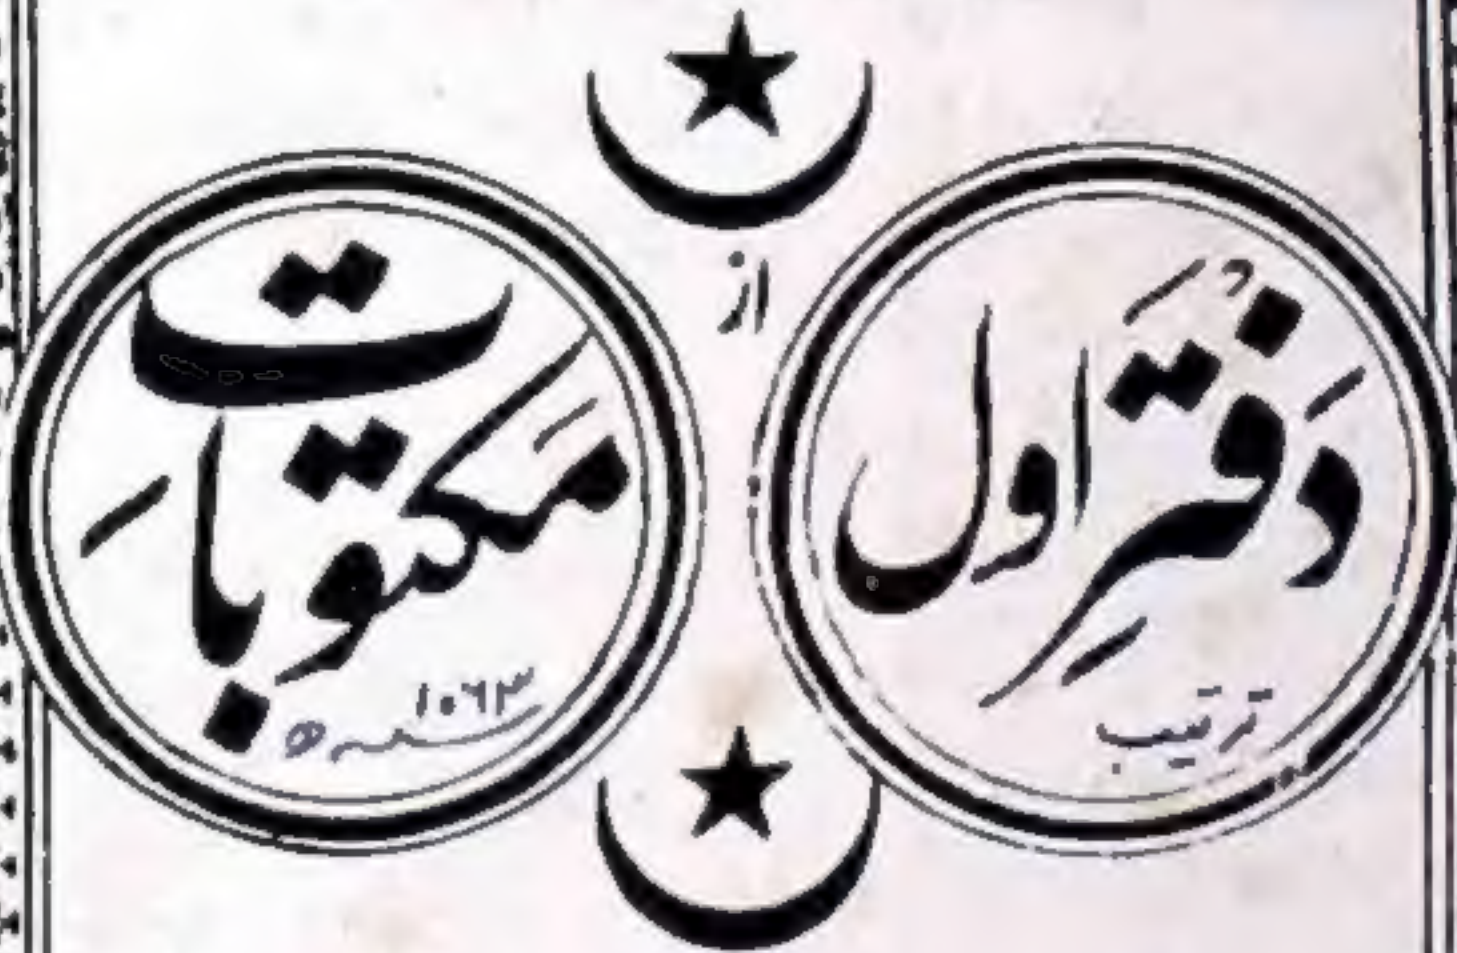 دَفْتَرِ اول
ترتیب
از
مَکتوباتِ
سنہ ۱۰۶۳ھ